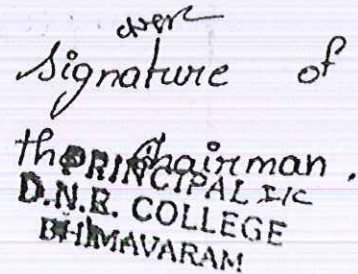 Signature of
the Chairman.
PRINCIPAL I/C
D.N.R. COLLEGE
BHIMAVARAM